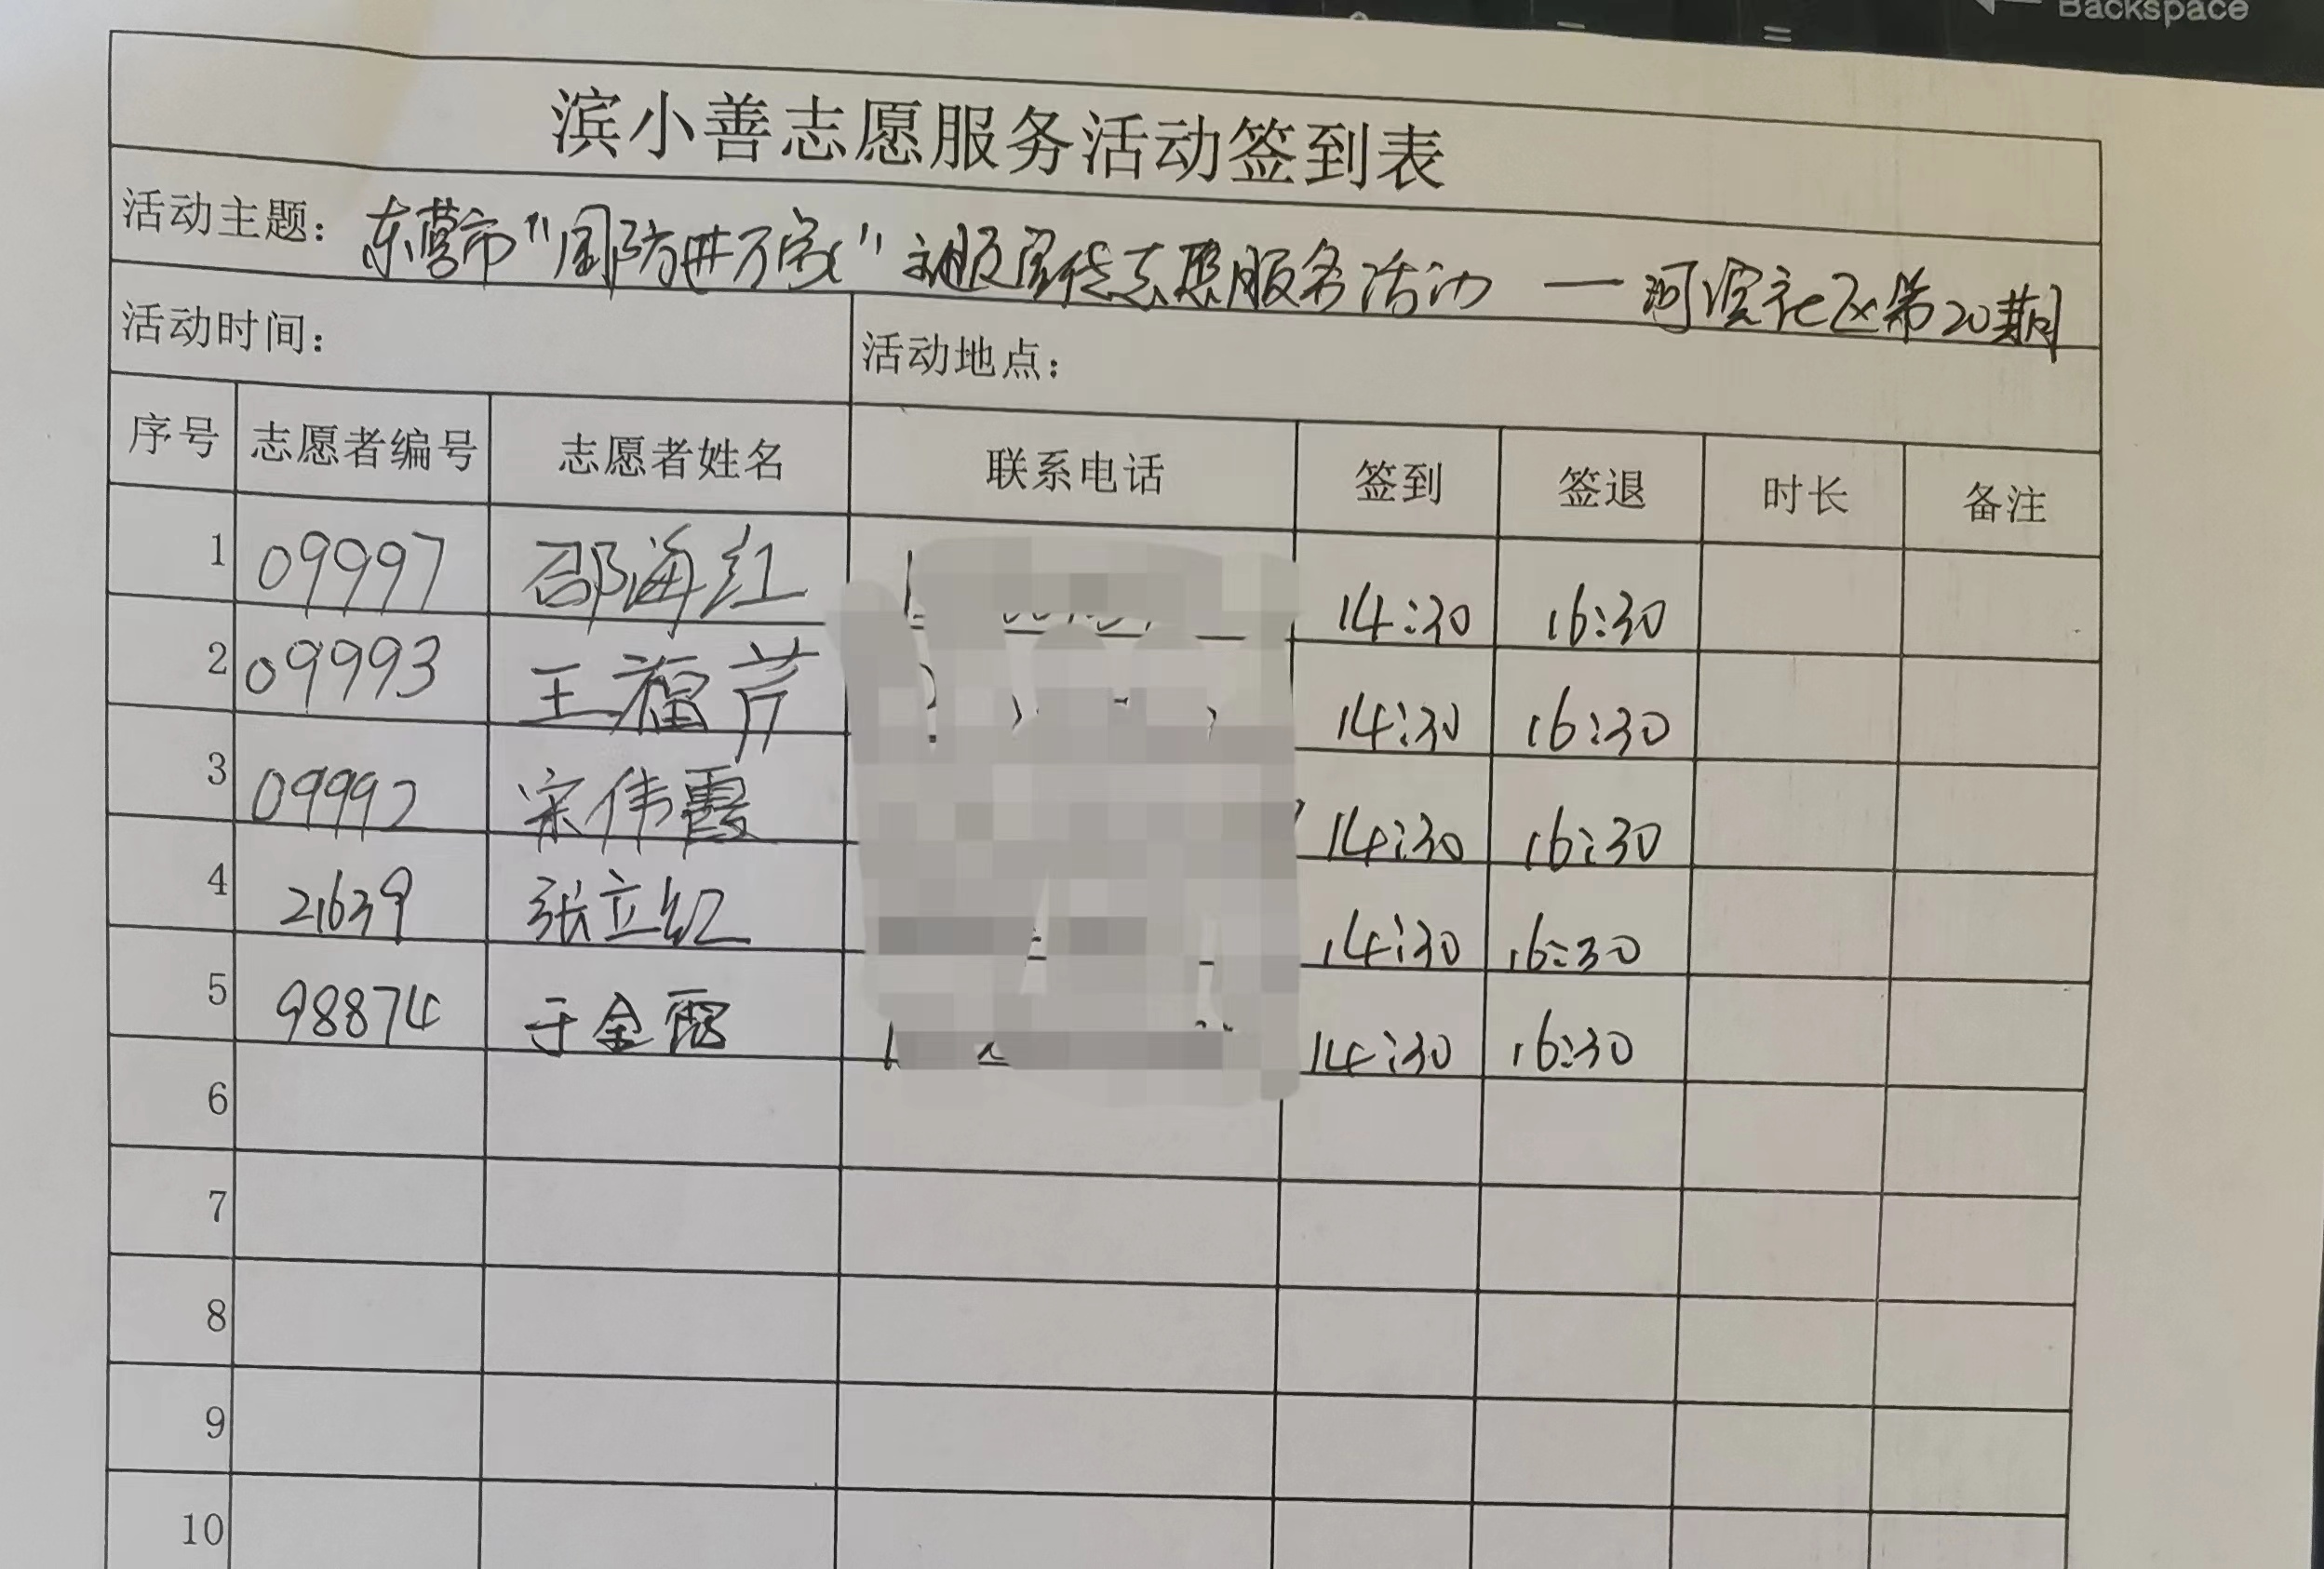 Backspace
=
滨小善志愿服务活动签到表
活动主题：东营市"国防进万家"主题宣传志愿服务活动 — 河滨社区第20期
活动时间： 活动地点：
序号 志愿者编号 志愿者姓名 联系电话 签到 签退 时长 备注
1 09997 邵海红 14:30 16:30
2 09993 王福芹 14:30 16:30
3 09992 宋伟霞 14:30 16:30
4 21639 张立红 14:30 16:30
5 98874 于金霞 14:30 16:30
6
7
8
9
10